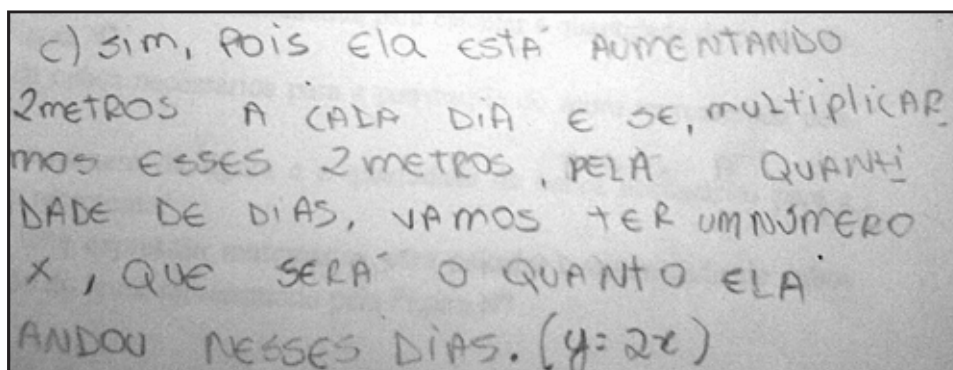 c) SIM, POIS ELA ESTÁ AUMENTANDO
2METROS A CADA DIA E SE, MULTIPLICAR
MOS ESSES 2 METROS, PELA QUANTI
DADE DE DIAS, VAMOS TER UM NÚMERO
X, QUE SERÁ O QUANTO ELA
ANDOU NESSES DIAS. (y=2x)